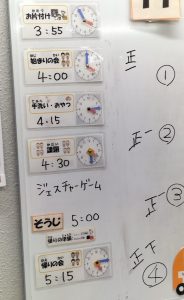 お片付け
3:55
始まりの会
4:00
手洗い・おやつ
4:15
課題
4:30
ジェスチャーゲーム
そうじ 5:00
帰りの準備
帰りの会
5:15
正 ①
正一 ②
正一 ③
正下 ④